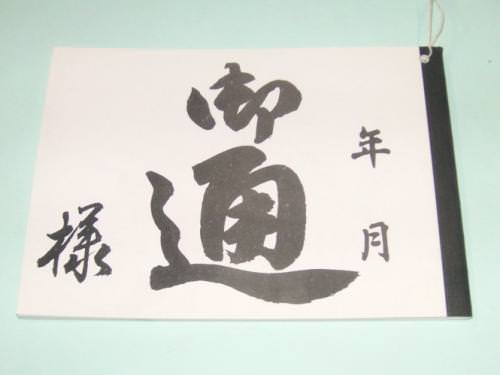 年 月
御通
様